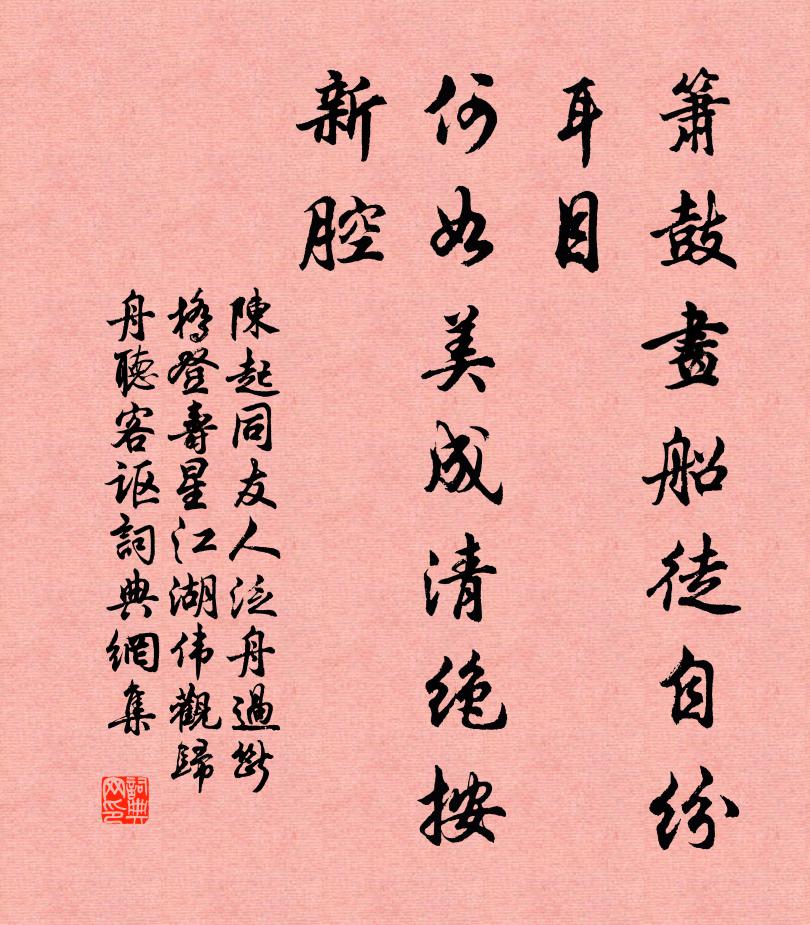 箫鼓畫船徒自纷
耳目
何如美成清绝按
新腔
陳起同友人泛舟過斷
橋登壽星江湖伟觀歸
舟聴客讴詞典網集
詞典网印